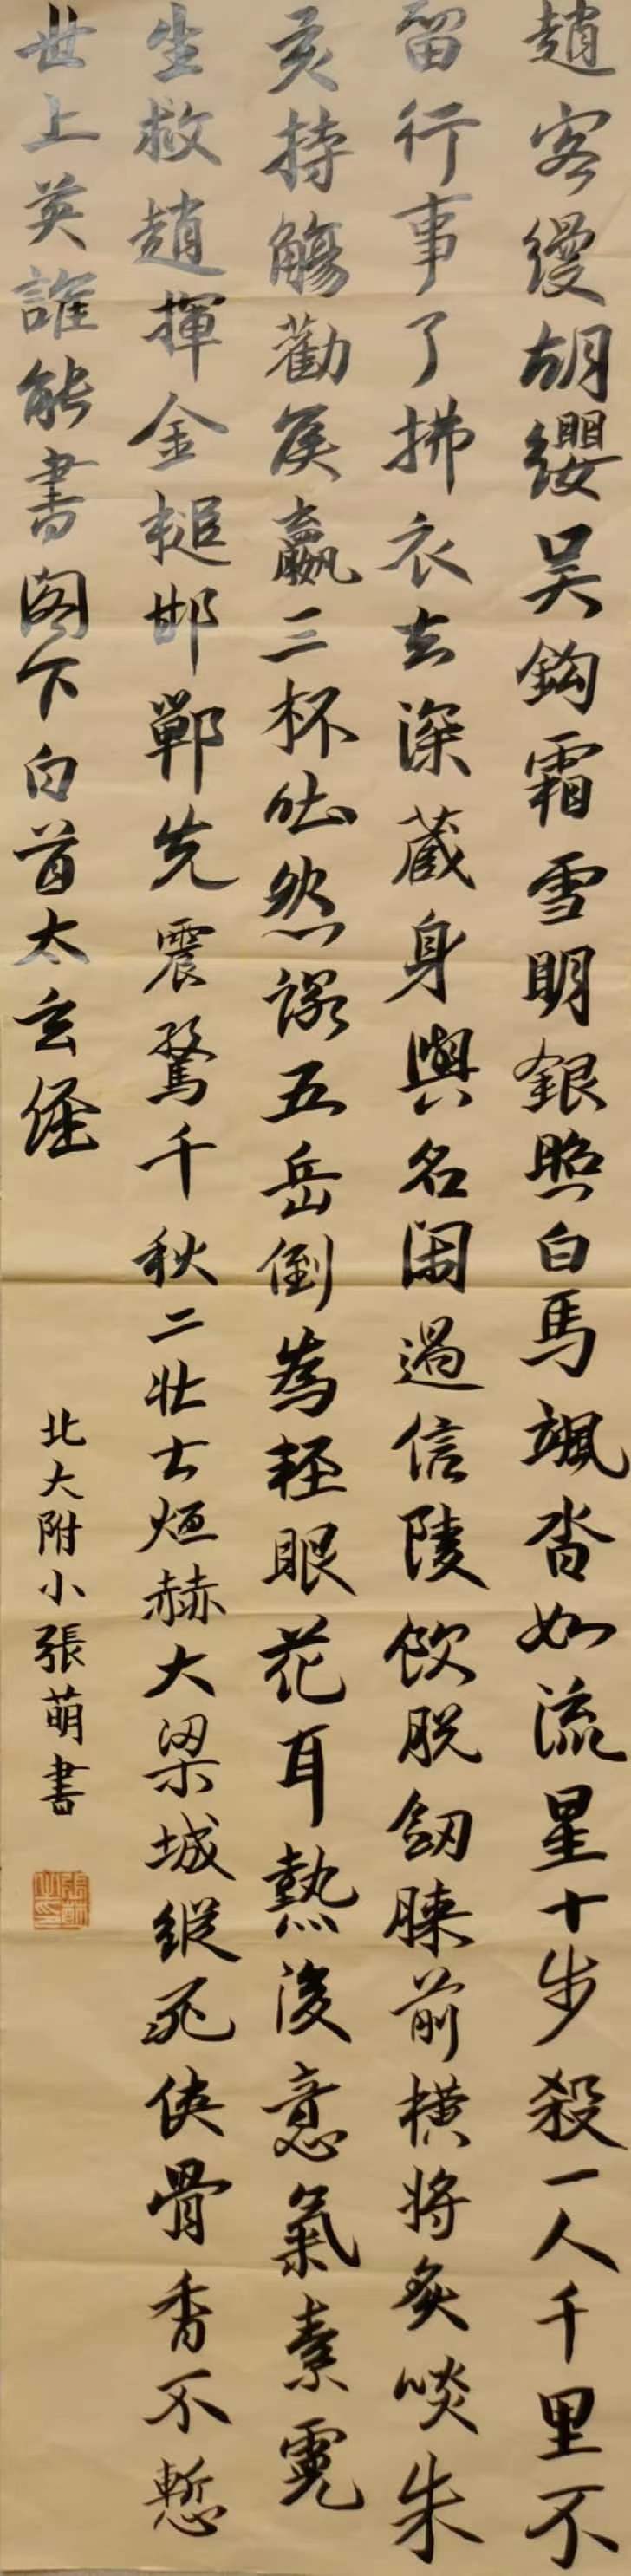 趙客縵胡纓吳鉤霜雪明銀照白馬颯沓如流星十步殺一人千里不
留行事了拂衣去深藏身與名閑過信陵飲脫劒膝前橫將炙啖朱
亥持觴勸侯嬴三杯吐然諾五岳倒為輕眼花耳熱後意氣素霓
生救趙揮金槌邯鄲先震驚千秋二壯士烜赫大梁城縱死俠骨香不慙
世上英誰能書閣下白首太玄經
北大附小張萌書